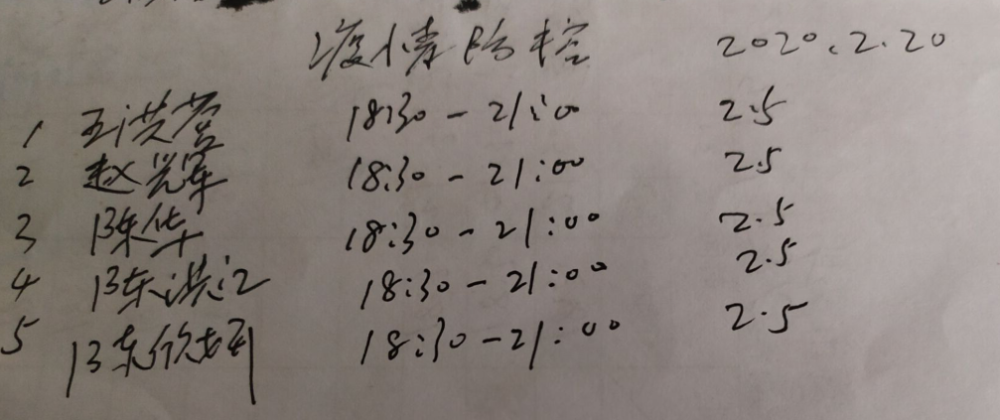 疫情防控 2020.2.20
1 王洪营 18:30-21:00 2.5
2 赵光军 18:30-21:00 2.5
3 陈华 18:30-21:00 2.5
4 陈洪江 18:30-21:00 2.5
5 陈 18:30-21:00 2.5